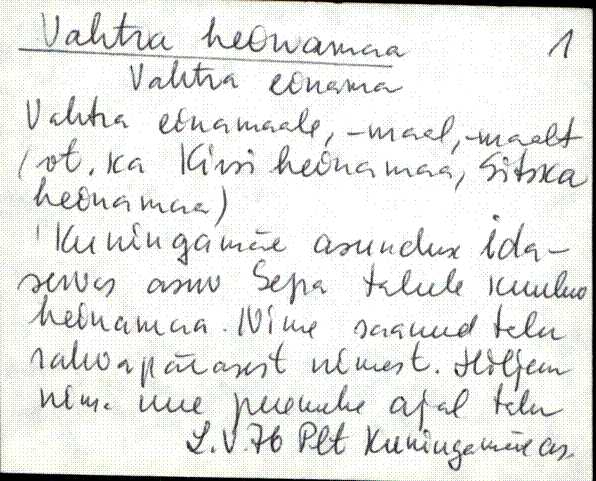 Vahtra heinamaa 1
Vahtra einama
Vahtra einamaale, -maal, -maalt
(vt. ka Kirsi heinamaa, Sitska
heinamaa)
Kuningamäe asunduse ida-
servas asuv Sepa talule kuuluv
heinamaa. Nime saanud talu
rahvapärasest nimest. Hiljem
nime uue peremehe ajal talu
L.V. 76 Plt Kuningamäe as.